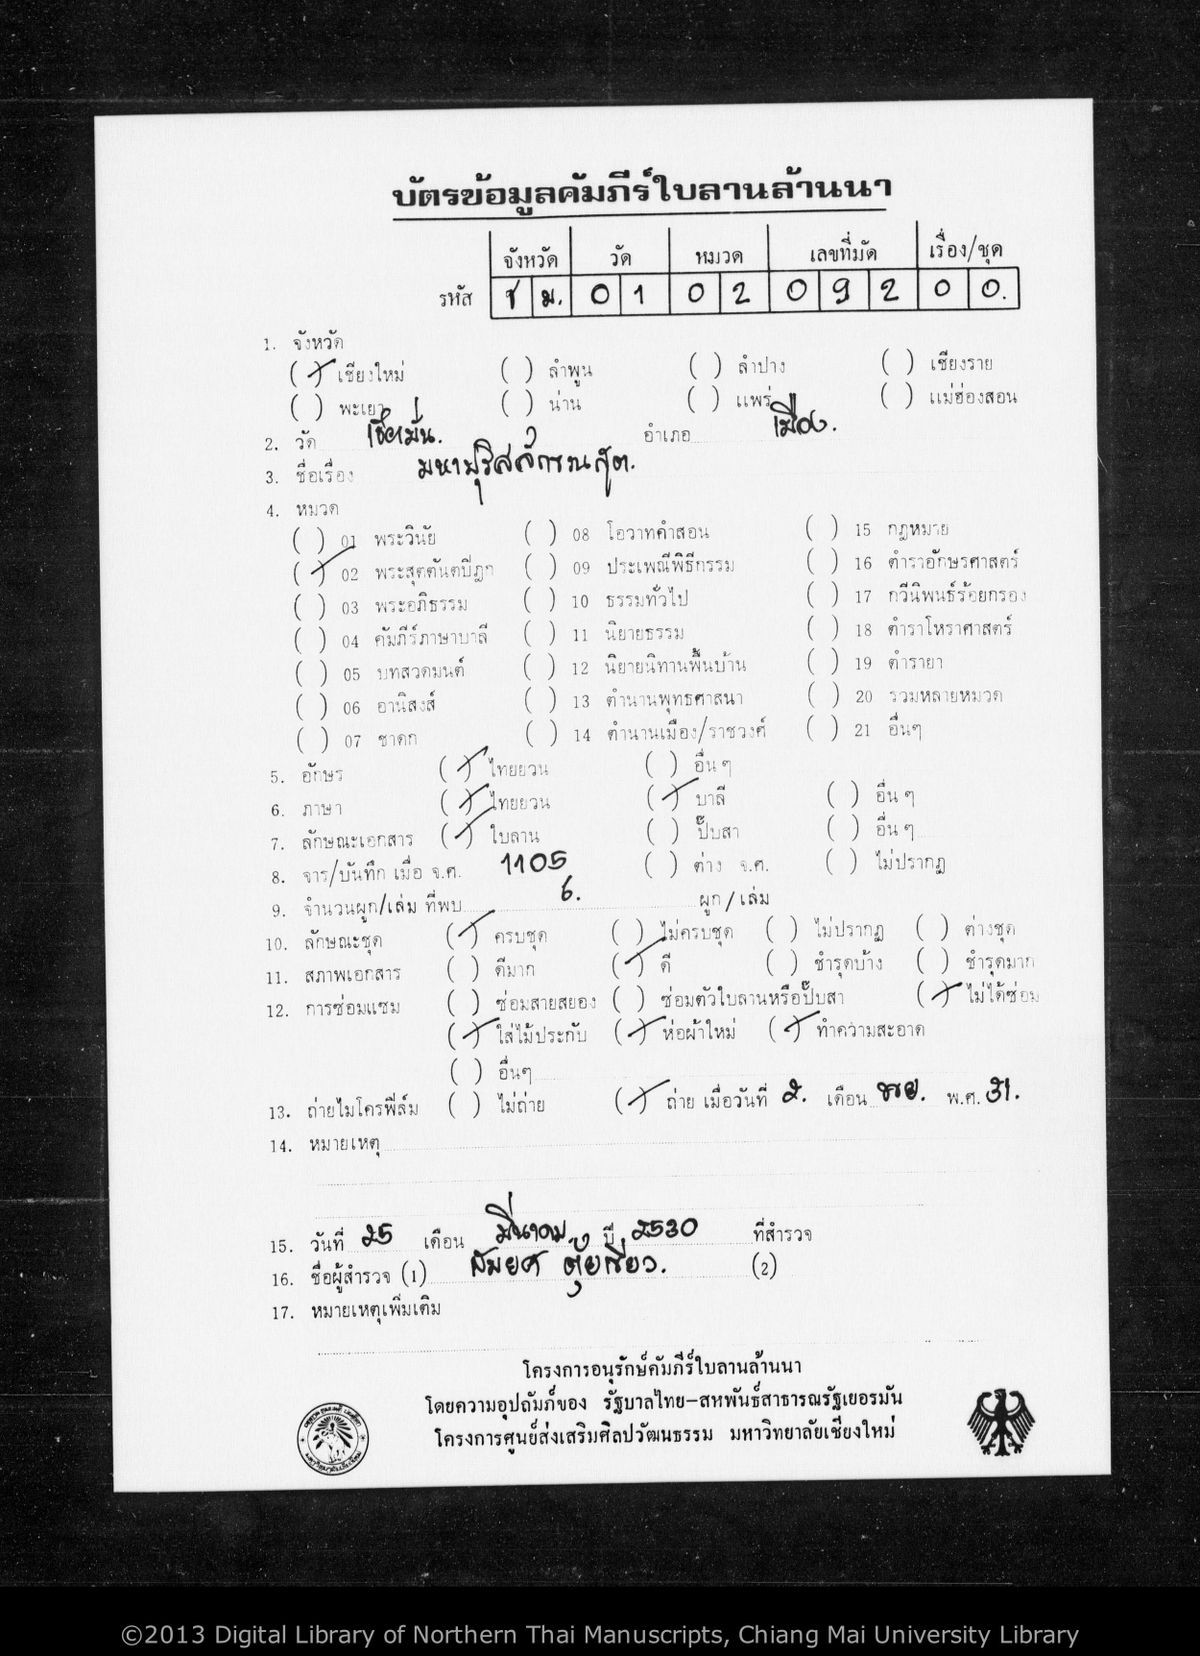 บัตรข้อมูลคัมภีร์ใบลานล้านนา
จังหวัด วัด หมวด เลขที่มัด เรื่อง/ชุด
รหัส ช ม. 0 1 0 2 0 9 2 0 0.
1. จังหวัด
(/) เชียงใหม่ ( ) ลำพูน ( ) ลำปาง ( ) เชียงราย
( ) พะเยา ( ) น่าน ( ) แพร่ ( ) แม่ฮ่องสอน
2. วัด เชียงมั่น. อำเภอ เมือง.
3. ชื่อเรื่อง
4. หมวด
( ) 01 พระวินัย ( ) 08 โอวาทคำสอน ( ) 15 กฎหมาย
(/) 02 พระสุตตันตปิฎก ( ) 09 ประเพณีพิธีกรรม ( ) 16 ตำราอักษรศาสตร์
( ) 03 พระอภิธรรม ( ) 10 ธรรมทั่วไป ( ) 17 กวีนิพนธ์ร้อยกรอง
( ) 04 คัมภีร์ภาษาบาลี ( ) 11 นิยายธรรม ( ) 18 ตำราโหราศาสตร์
( ) 05 บทสวดมนต์ ( ) 12 นิยายนิทานพื้นบ้าน ( ) 19 ตำรายา
( ) 06 อานิสงส์ ( ) 13 ตำนานพุทธศาสนา ( ) 20 รวมหลายหมวด
( ) 07 ชาดก ( ) 14 ตำนานเมือง/ราชวงศ์ ( ) 21 อื่นๆ
5. อักษร (/) ไทยยวน ( ) อื่นๆ
6. ภาษา (/) ไทยยวน (/) บาลี ( ) อื่นๆ
7. ลักษณะเอกสาร (/) ใบลาน ( ) ปั๊บสา ( ) อื่นๆ
8. จาร/บันทึก เมื่อ จ.ศ. 1105 ( ) ต่าง จ.ศ. ( ) ไม่ปรากฏ
9. จำนวนผูก/เล่ม ที่พบ 6. ผูก/เล่ม
10. ลักษณะชุด (/) ครบชุด ( ) ไม่ครบชุด ( ) ไม่ปรากฏ ( ) ต่างชุด
11. สภาพเอกสาร ( ) ดีมาก (/) ดี ( ) ชำรุดบ้าง ( ) ชำรุดมาก
12. การซ่อมแซม ( ) ซ่อมสายสยอง ( ) ซ่อมตัวใบลานหรือปั๊บสา (/) ไม่ได้ซ่อม
(/) ใส่ไม้ประกับ (/) ห่อผ้าใหม่ (/) ทำความสะอาด
( ) อื่นๆ
13. ถ่ายไมโครฟิล์ม ( ) ไม่ถ่าย (/) ถ่าย เมื่อวันที่ 2. เดือน พ.ศ. 31.
14. หมายเหตุ
15. วันที่ 25 เดือน มีนาคม ปี 2530 ที่สำรวจ
16. ชื่อผู้สำรวจ (1) (2)
17. หมายเหตุเพิ่มเติม
โครงการอนุรักษ์คัมภีร์ใบลานล้านนา
โดยความอุปถัมภ์ของ รัฐบาลไทย-สหพันธ์สาธารณรัฐเยอรมัน
โครงการศูนย์ส่งเสริมศิลปวัฒนธรรม มหาวิทยาลัยเชียงใหม่
©2013 Digital Library of Northern Thai Manuscripts, Chiang Mai University Library